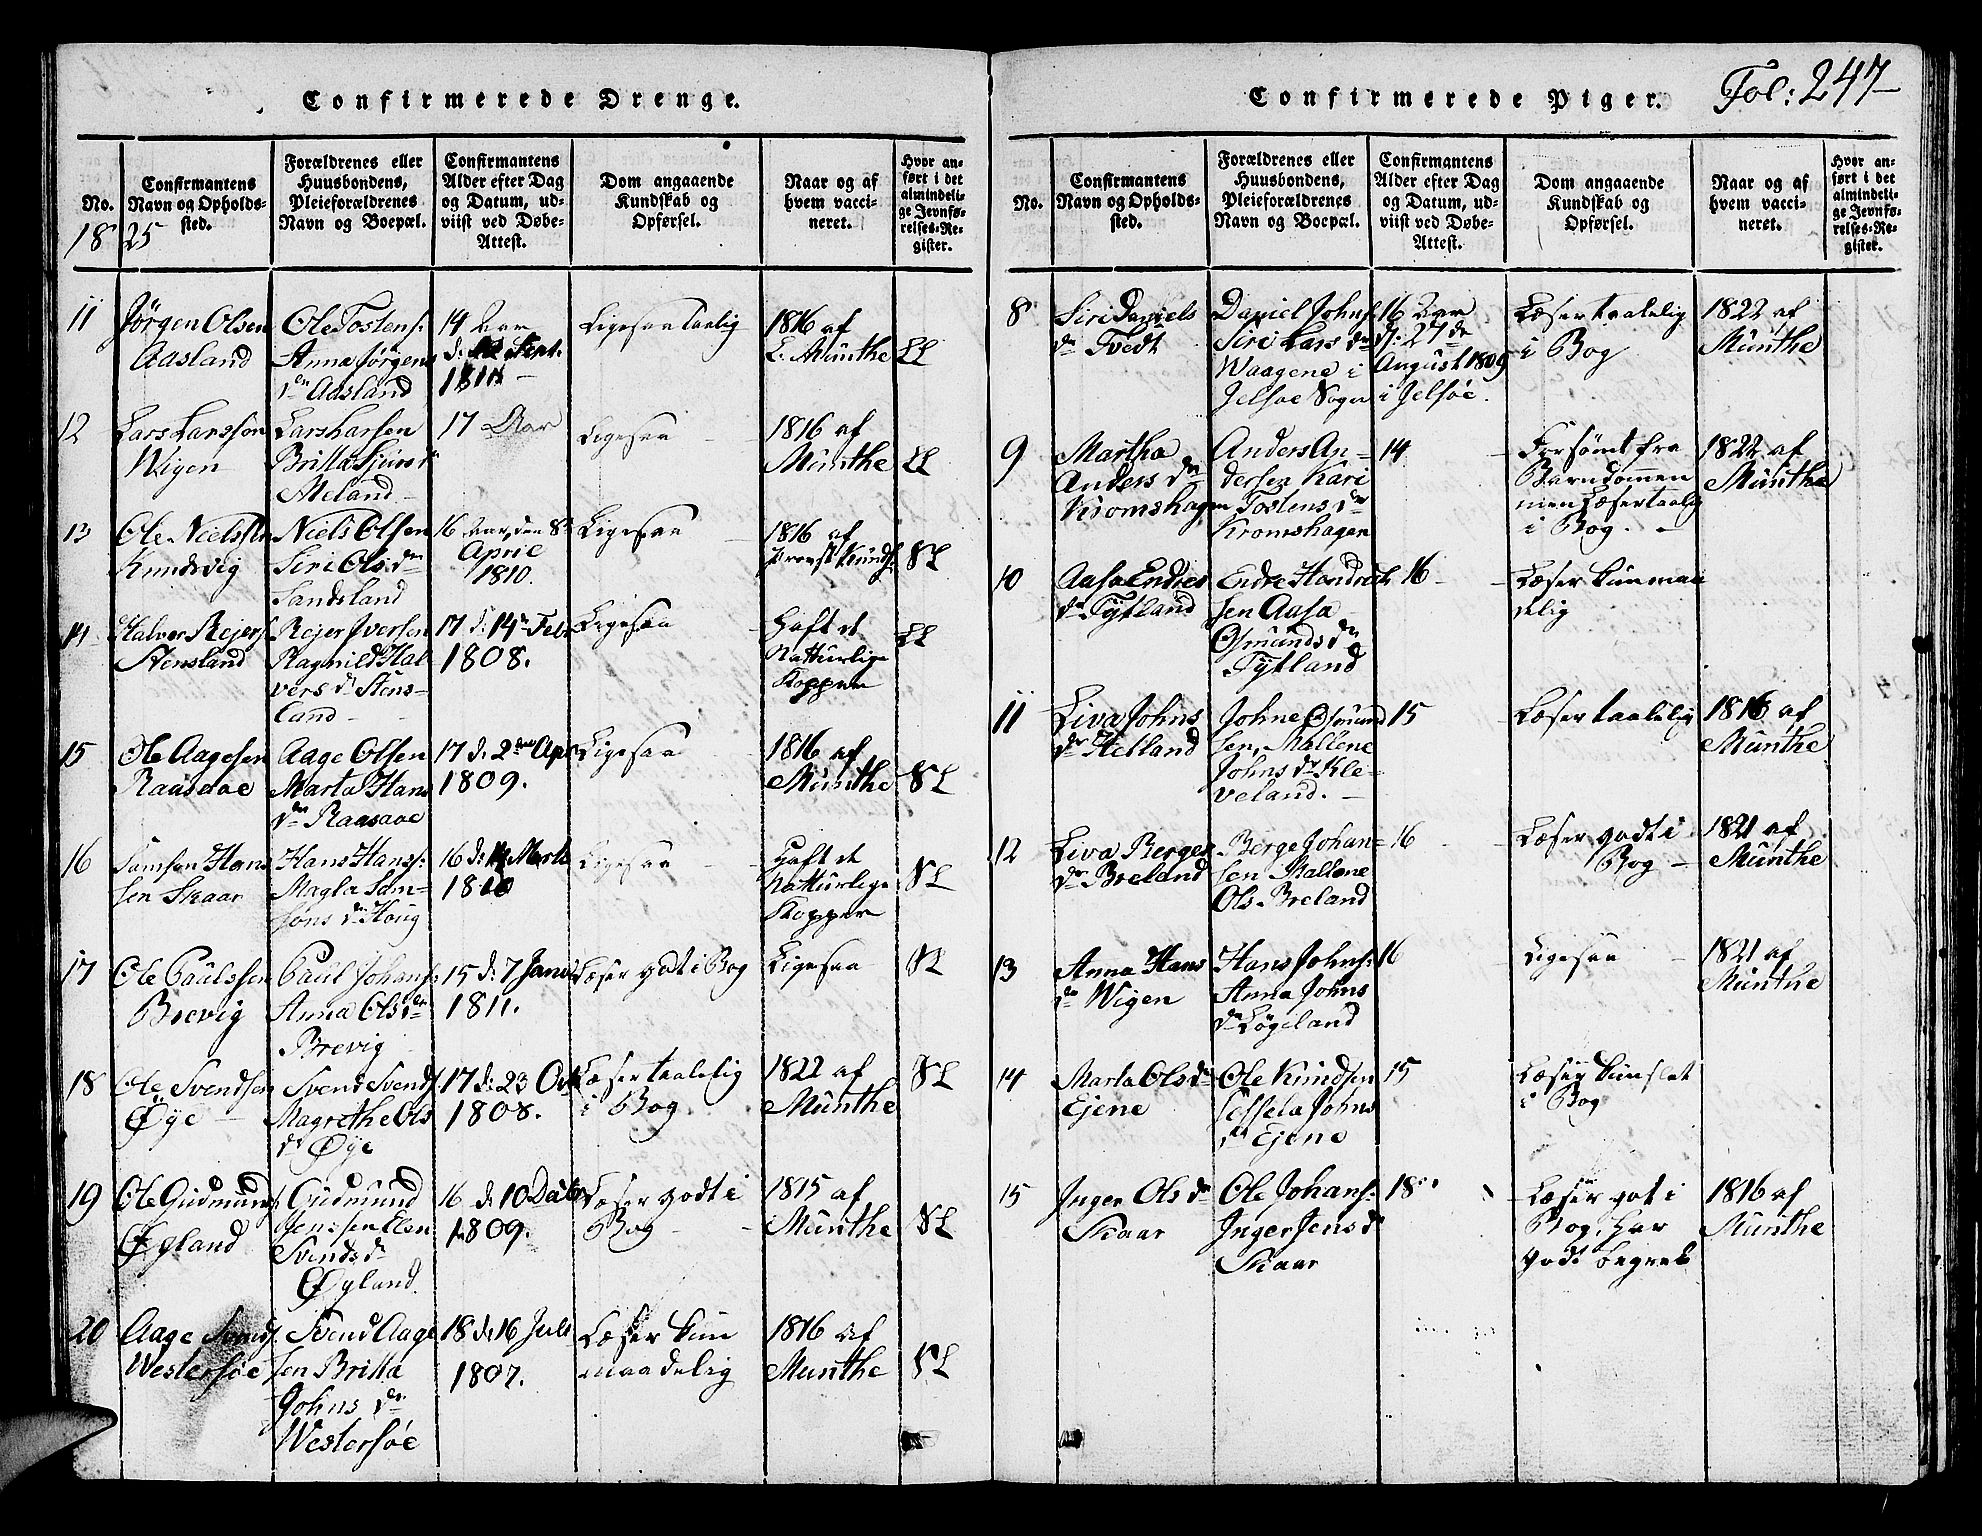 Confirmerede Drenge.
No.
Confirmantens
Navn og Opholds-
sted.
Forældrenes eller
Huusbondens,
Pleieforældrenes
Navn og Boepæl.
Confirmantens
Alder efter Dag
og Datum, ud-
viist ved Døbe-
Attest.
Dom angaaende
Kundskab og
Opførsel.
Naar og af
hvem vacci-
neret.
Hvor an-
ført i det
almindeli-
ge Jevnfø-
relses-Re-
gister.
1825
11
Jørgen Olsen
Aasland
Ole Tostens:
Anna Jørgens
dr Aasland
14 Aar
d: 12 Sept.
1811
Ligesaa Taalig
1816 af
L. Münthe
12
Lars Larssøn
Wigen
Lars Larsen
Britta Sjurs
Meland
17 Aar
Ligesaa
1816 af
Münthe
13
Ole Nielssen
Kundsvig
Niels Olsen
Siri Ols dr
Sandsland
16 Aar, den 8de
April
1810.
Ligesaa
1816 af
Provst Kund
14
Halvor Rejers
Stensland
Rejer Iversen
Ragnild Hal
vers dr Stens-
land
17 d: 14n Feb
1808.
Ligesaa
Haft de
Natturlige
Kopper
15
Ole Aagesen
Raasaae
Aage Olsen
Marta Hans
dr Raasaae
17 d: 2den Apr
1809.
Ligesaa
1816 af
Münthe
16
Samson Hans
sen Skaar
Hans Hanss:
Magla Sam-
sons dr Houg
16 d: 14 Marts
1810
Ligesaa
Haft de
Natturlige
Kopper
17
Ole Paulssen
Brevig
Paul Johans:
Anna Ols dr
Brevig
15 d: 7 Janu
1811.
Læser godt i Bog
Ligesaa
18
Ole Svendsen
Øye
Svend Svends
Magrethe Ols
dr Øye
17 d: 23 Oct
1808.
Læser taalelig
i Bog
1822 af
Münthe
19
Ole Gudmunds
Øgland
Gudmund
Jenssen Elen
Svends dr
Øgland.
16 d: 10 Dec
1809.
Læser godt i
Bog
1815 af
Münthe
20
Aage Svends
Westersøe
Svend Aage
sen Britta
Johns dr
Westersøe
18 d: 16 Juli
1807.
Læser kun
maadelig
1816 af
Münthe
Confirmerede Piger.
Fol: 247
No.
Confirmantens
Navn og Opholds-
sted.
Forældrenes eller
Huusbondens,
Pleieforældrenes
Navn og Boepæl.
Confirmantens
Alder efter Dag
og Datum, ud-
viist ved Døbe-
Attest.
Dom angaaende
Kundskab og
Opførsel.
Naar og af
hvem vacci-
neret.
Hvor an-
ført i det
almindeli-
ge Jevnfø-
relses-Re-
gister.
8
Siri Daniels
dr Tvedt
Daniel Johns
Siri Lars dr
Waagene i
Jelsøe Sogn
16 Aar
d: 27de
August 1809
i Jelsøe.
Læser taalelig
i Bog
1822 af
Münthe
9
Martha
Anders dr
Kromshagen
Anders An-
dersen Kari
Tostens dr
Kromshagen
14
Forsømt fra
Barndommen
men Læser taalig
i Bog.
1822 af
Münthe
10
Aasa Endres
dr Tytland
Endre Hendrich
sen Aasa
Osmunds dr
Tytland
16
Læser kun maa
delig
11
Liva Johns
dr Helland
Johne Osmund
sen, Mallene
Johns dr Kle-
veland.
15
Læser taalelig
1816 af
Münthe
12
Liva Berges
dr Breland
Berge Johan-
sen Mallene
Ols. Breland
16
Læser godt i
Bog
1821 af
Münthe
13
Anna Hans
dr Wigen
Hans Johns:
Anna Johns
dr Løgeland
16
Ligesaa
1821 af
Münthe
14
Marta Ols dr
Ejene
Ole Knudsen
Johns
dr Ejene
15
Læser kun slet
i Bog
15
Inger Ols dr
Skaar
Ole Johans:
Inger Jens d
Skaar
18
Læser got i
Bog, har
godt begreb
1816 af
Münthe